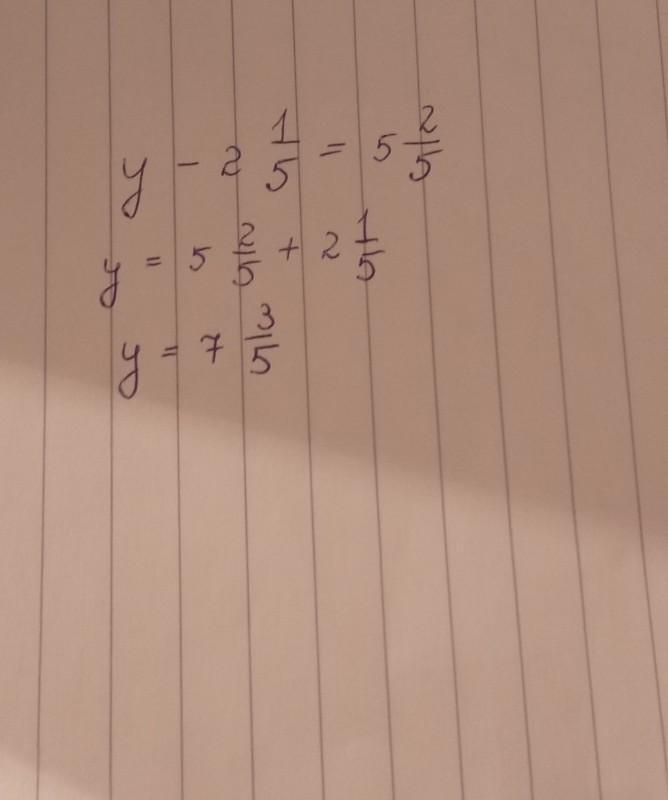 y - 2 1/5 = 5 2/5
y = 5 2/5 + 2 1/5
y = 7 3/5